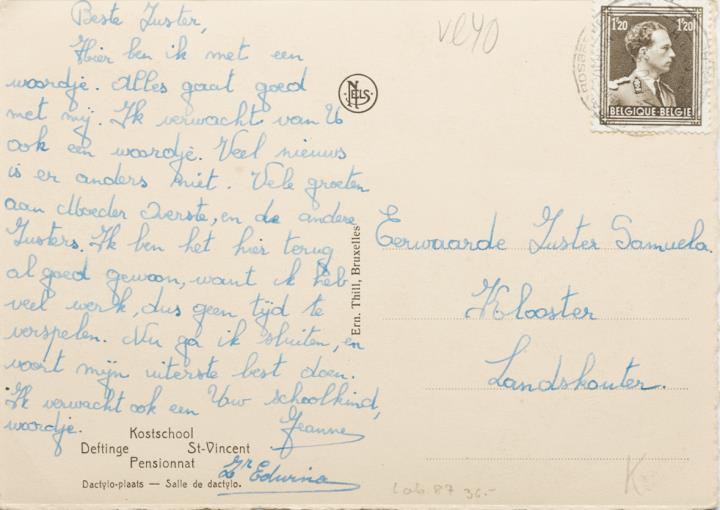 Beste Zuster,
Hier ben ik met een
woordje. Alles gaat goed
met mij. Ik verwacht van U
ook een woordje. Veel nieuws
is er anders niet. Vele groeten
aan Moeder Overste, en de andere
Zusters. Ik ben het hier terug
al goed gewoon, want ik heb
veel werk, dus geen tijd te
verspelen. Nu ga ik sluiten, en
voort mijn uiterste best doen.
Ik verwacht ook een
woordje.
Uw schoolkind,
Jeanne
Zr Edwina
Kostschool
Deftinge St-Vincent
Pensionnat
Dactylo-plaats — Salle de dactylo.
NELS
Ern. Thill, Bruxelles
1F20 1F20
BELGIQUE·BELGIE
Eerwaarde Zuster Samuela.
Klooster
Landskouter.